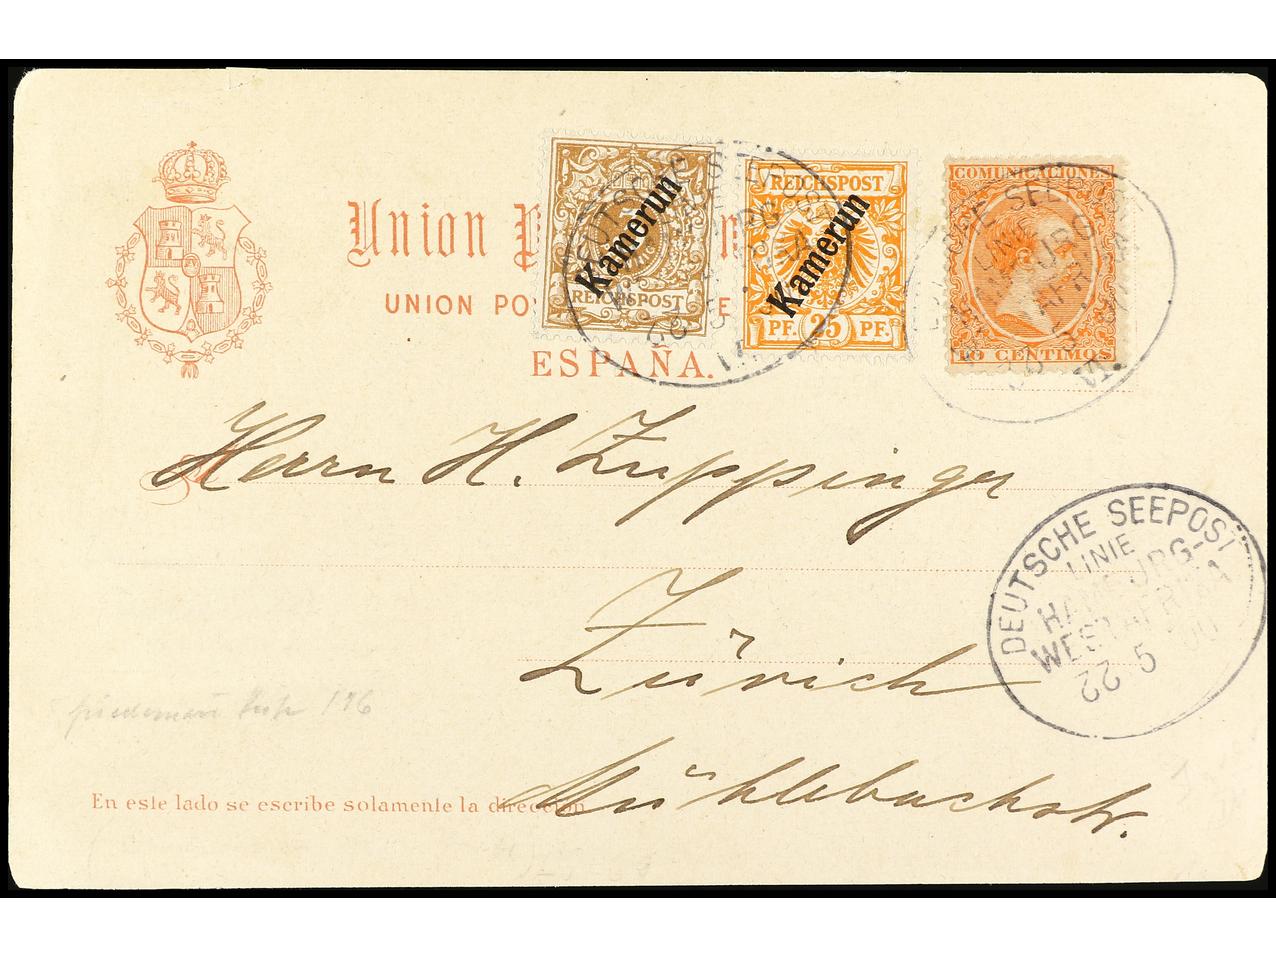 Union P
UNION PO
ESPAÑA.
REICHSPOST
Kamerun
REICHSPOST
Kamerun
PF. 25 PF.
COMUNICACIONES
10 CENTIMOS
Herrn H. Zuppinger
Zürich
Mühlebachstr.
DEUTSCHE SEEPOST
LINIE
HAMBURG-
WESTAFRIKA
22 5 00
En este lado se escribe solamente la dirección